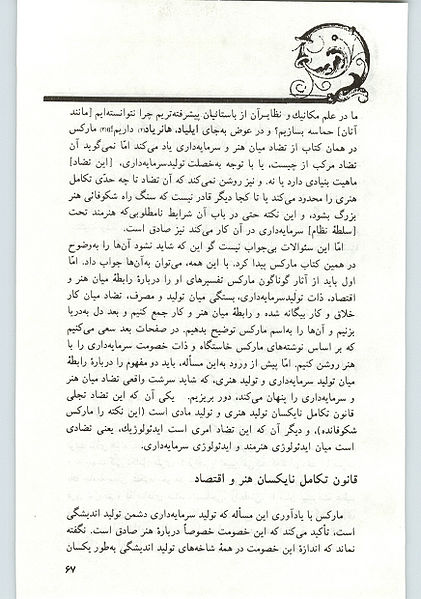 ما در علم مکانیك و نظایر‌آن از باستانیان پیشرفته‌تریم چرا نتوانسته‌ایم [مانند
آنان] حماسه بسازیم؟ و در عوض به‌جای ایلیاد، هانریاد(۲) داریم!](۳) مارکس
در همان کتاب از تضاد میان هنر و سرمایه‌داری یاد می‌کند امّا نمی‌گوید آن
تضاد مرکب از چیست، یا با توجه به‌خصلت تولیدسرمایه‌داری، [این تضاد]
ماهیت بنیادی دارد یا نه. و نیز روشن نمی‌کند که آن تضاد تا چه حدّی تکامل
هنری را محدود می‌کند یا تا کجا دیگر قادر نیست که سنگ راه شکوفائی هنر
بزرگ بشود، و این نکته حتی در باب آن شرایط نامطلوبی‌که هنرمند تحت
[سلطهٔ نظام] سرمایه‌داری در آن کار می‌کند نیز صادق است.
امّا این سئوالات بی‌جواب نیست گو این که شاید نشود آن‌ها را به‌وضوح
در همین کتاب مارکس پیدا کرد. با این همه، می‌توان به‌آن‌ها جواب داد. امّا
اول باید از آثار گوناگون مارکس تفسیرهای او را دربارهٔ رابطهٔ میان هنر و
اقتصاد، ذات تولیدسرمایه‌داری، بستگی میان تولید و مصرف، تضاد میان کار
خلاق و کار بیگانه شده و رابطهٔ میان هنر و کار جمع کنیم و بعد دل به‌دریا
بزنیم و آن‌ها را به‌اسم مارکس توضیح بدهیم. در صفحات بعد سعی می‌کنیم
که بر اساس نوشته‌های مارکس خاستگاه و ذات خصومت سرمایه‌داری را با
هنر روشن کنیم. امّا پیش از ورود به‌این مسأله، باید دو مفهوم را دربارهٔ رابطهٔ
میان تولید سرمایه‌داری و تولید هنری، که شاید سرشت واقعی تضاد میان هنر
و سرمایه‌داری را پنهان می‌کند، دور بریزیم. یکی آن که این تضاد تجلی
قانون تکامل نایکسان تولید هنری و تولید مادی است (این نکته را مارکس
شکوفانده)، و دیگر آن که این تضاد امری است ایدئولوژیك، یعنی تضادی
است میان ایدئولوژی هنرمند و ایدئولوژی سرمایه‌داری.
قانون تکامل نایکسان هنر و اقتصاد
مارکس با یادآوری این مسأله که تولید سرمایه‌داری دشمن تولید اندیشگی
است، تأکید می‌کند که این خصومت خصوصاً دربارهٔ هنر صادق است. نگفته
نماند که اندازهٔ این خصومت در همهٔ شاخه‌های تولید اندیشگی به‌طور یکسان
۶۷